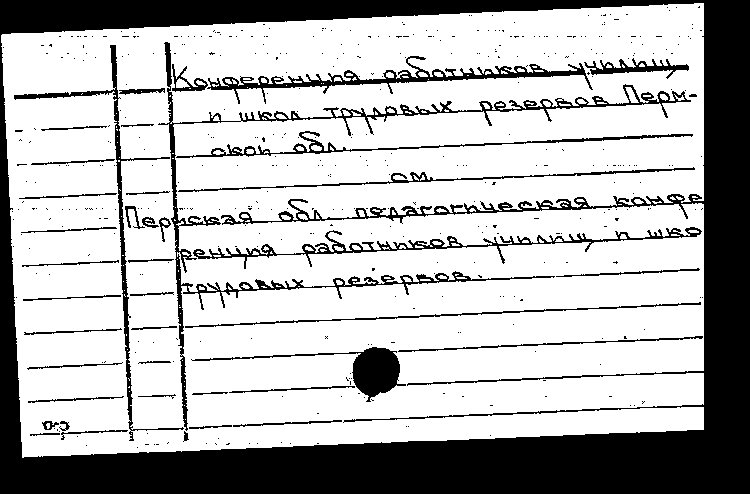 Конференция работников училищ
и школ трудовых резервов Перм-
ской обл.
см.
Пермская обл. педагогическая конфе
ренция работников училищ и шко
трудовых резервов.